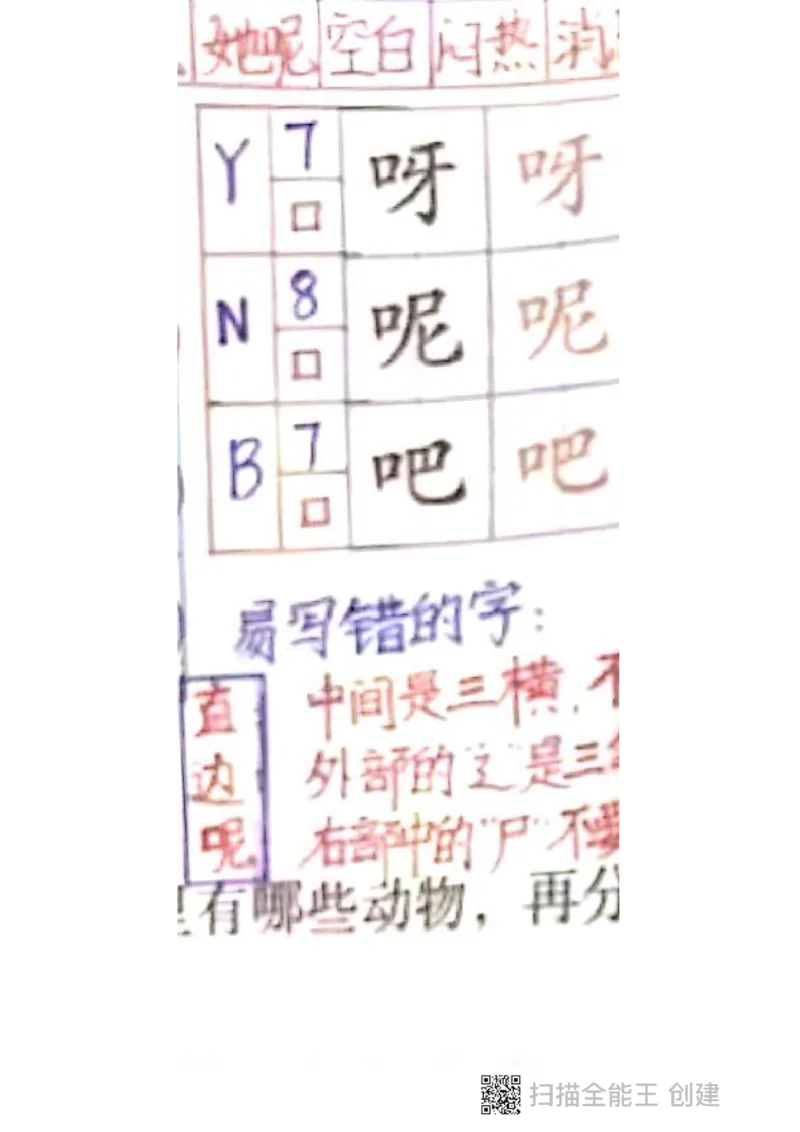 她呢 空白 闷热 消
Y 7 口 呀 呀
N 8 口 呢 呢
B 7 口 吧 吧
易写错的字：
直 中间是三横，不
边 外部的“辶”是三
呢 右部中的“尸”不要
有哪些动物，再分
扫描全能王 创建